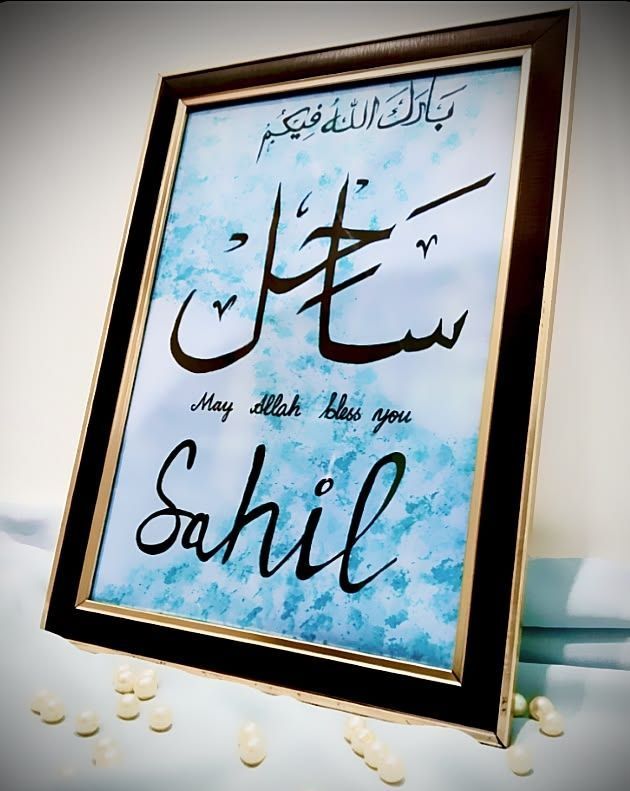 بَارَكَ اللهُ فِيكُمْ
ساحل
May Allah bless you
Sahil